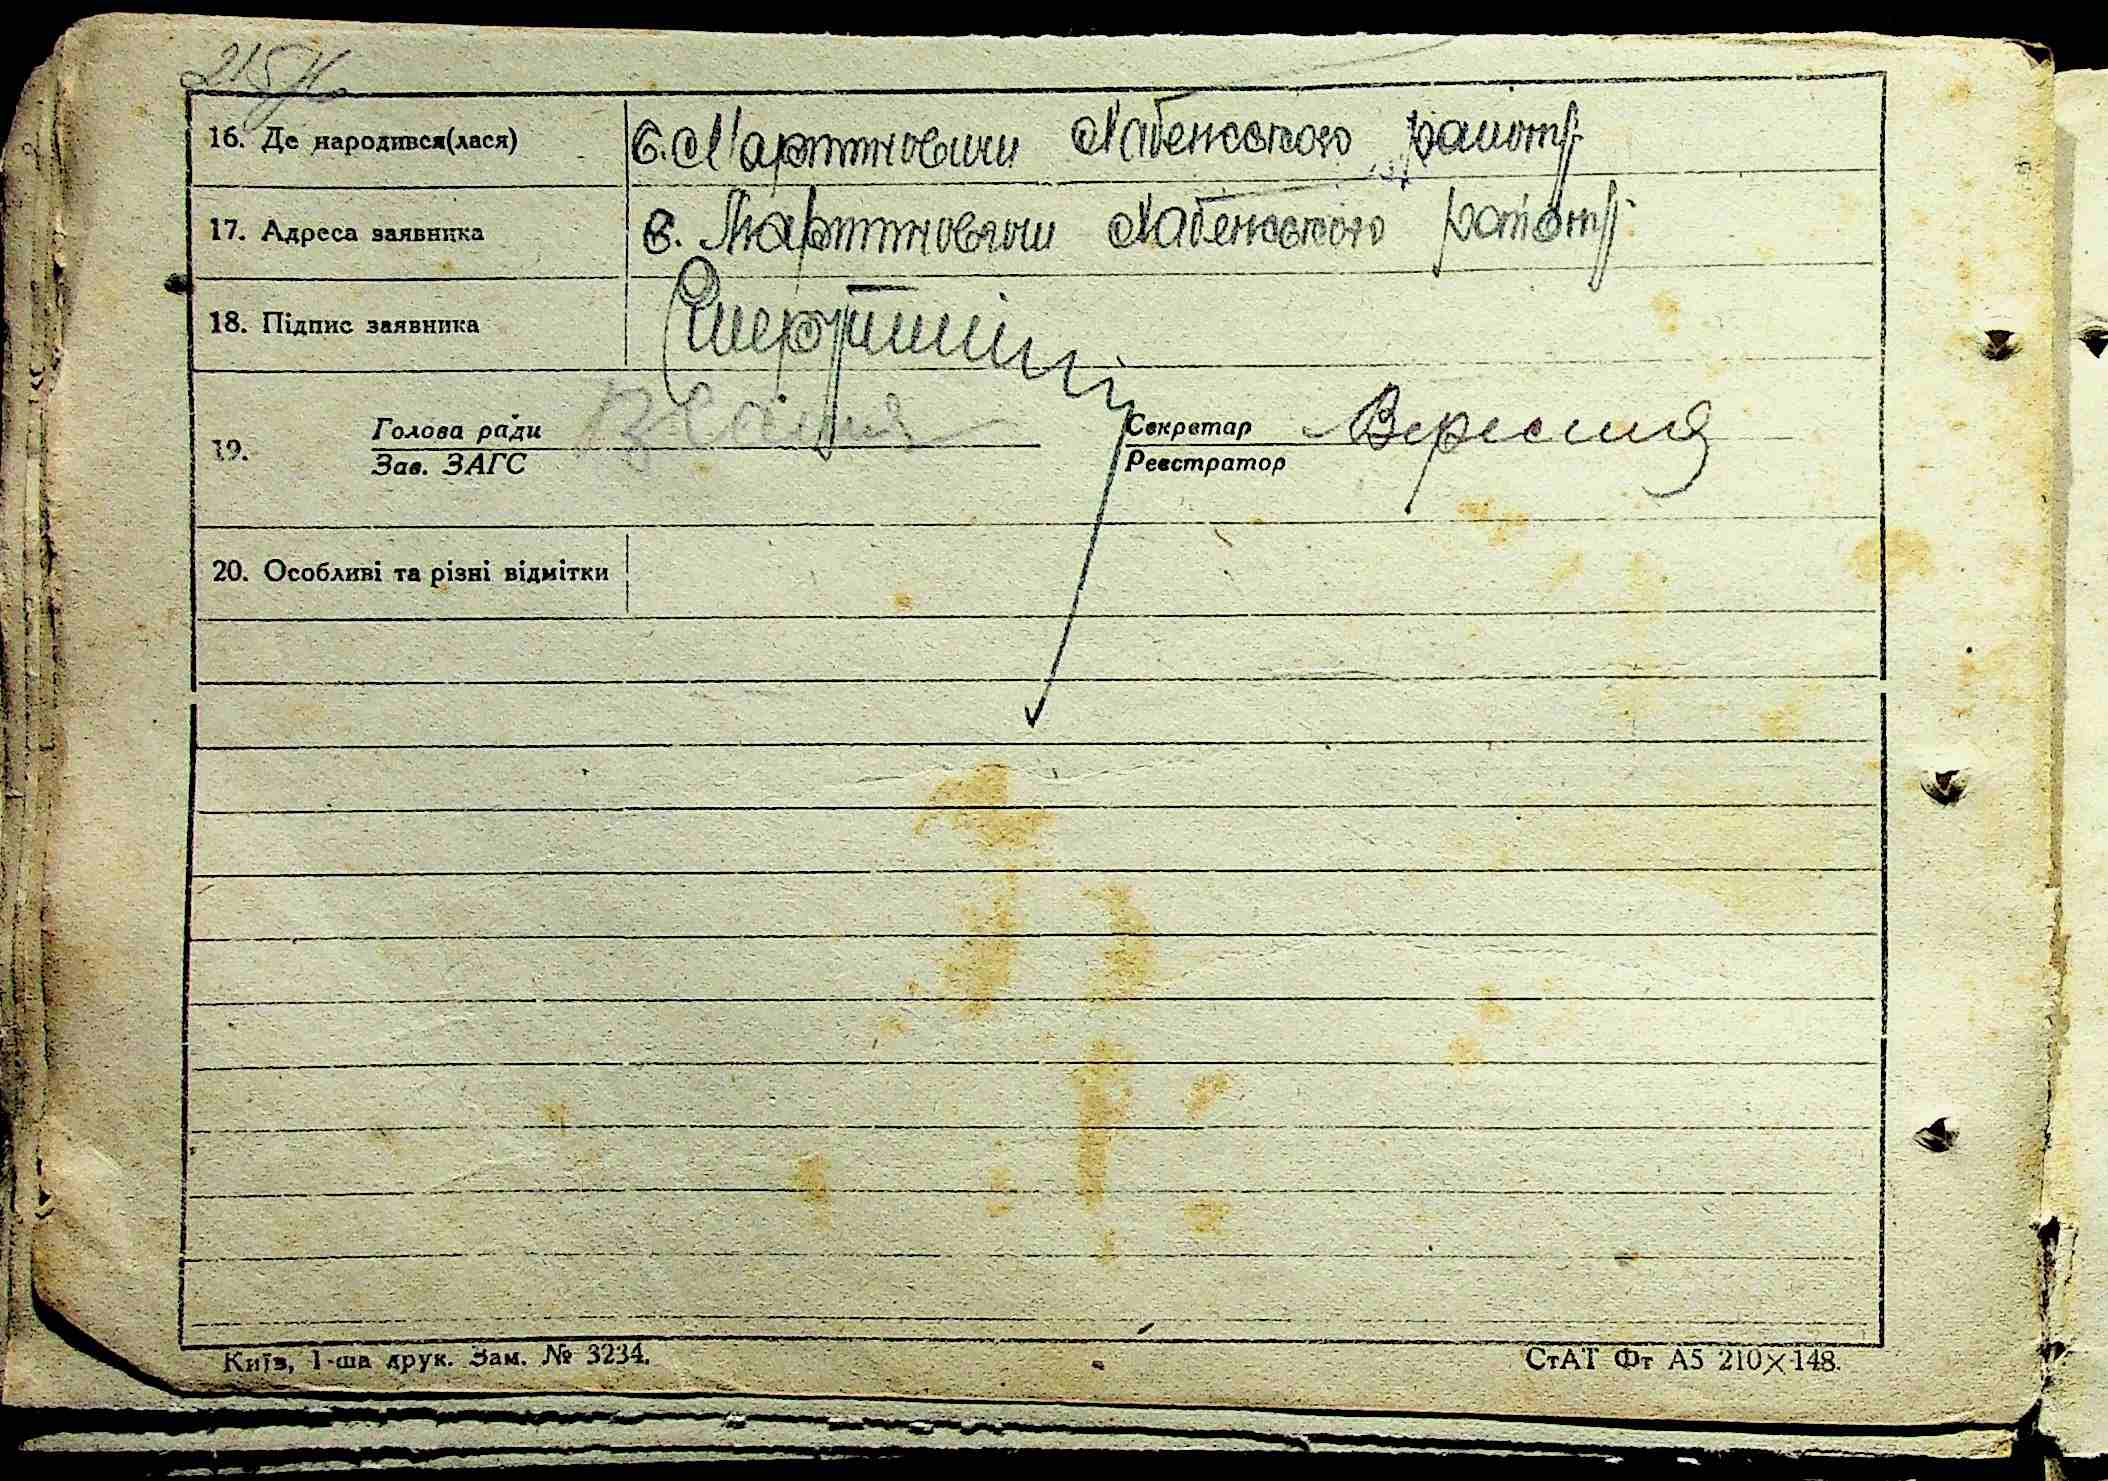 16. Де народився(лася) с. Мартиновичи Хабенського району
17. Адреса заявника с. Мартиновичи Хабенського району
18. Підпис заявника
19. Голова ради Секретар
Зав. ЗАГС Реєстратор
20. Особливі та різні відмітки
Київ, 1-ша друк. Зам. № 3234.
СтАТ Фт А5 210×148.